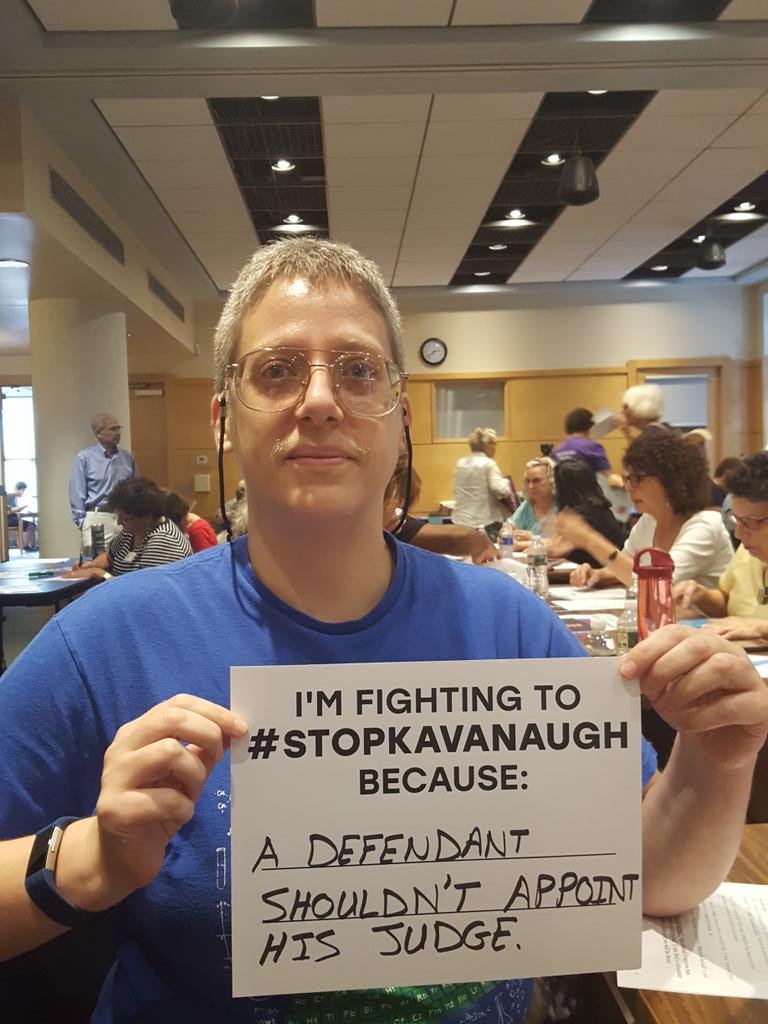 I'M FIGHTING TO
#STOPKAVANAUGH
BECAUSE:
A DEFENDANT
SHOULDN'T APPOINT
HIS JUDGE.